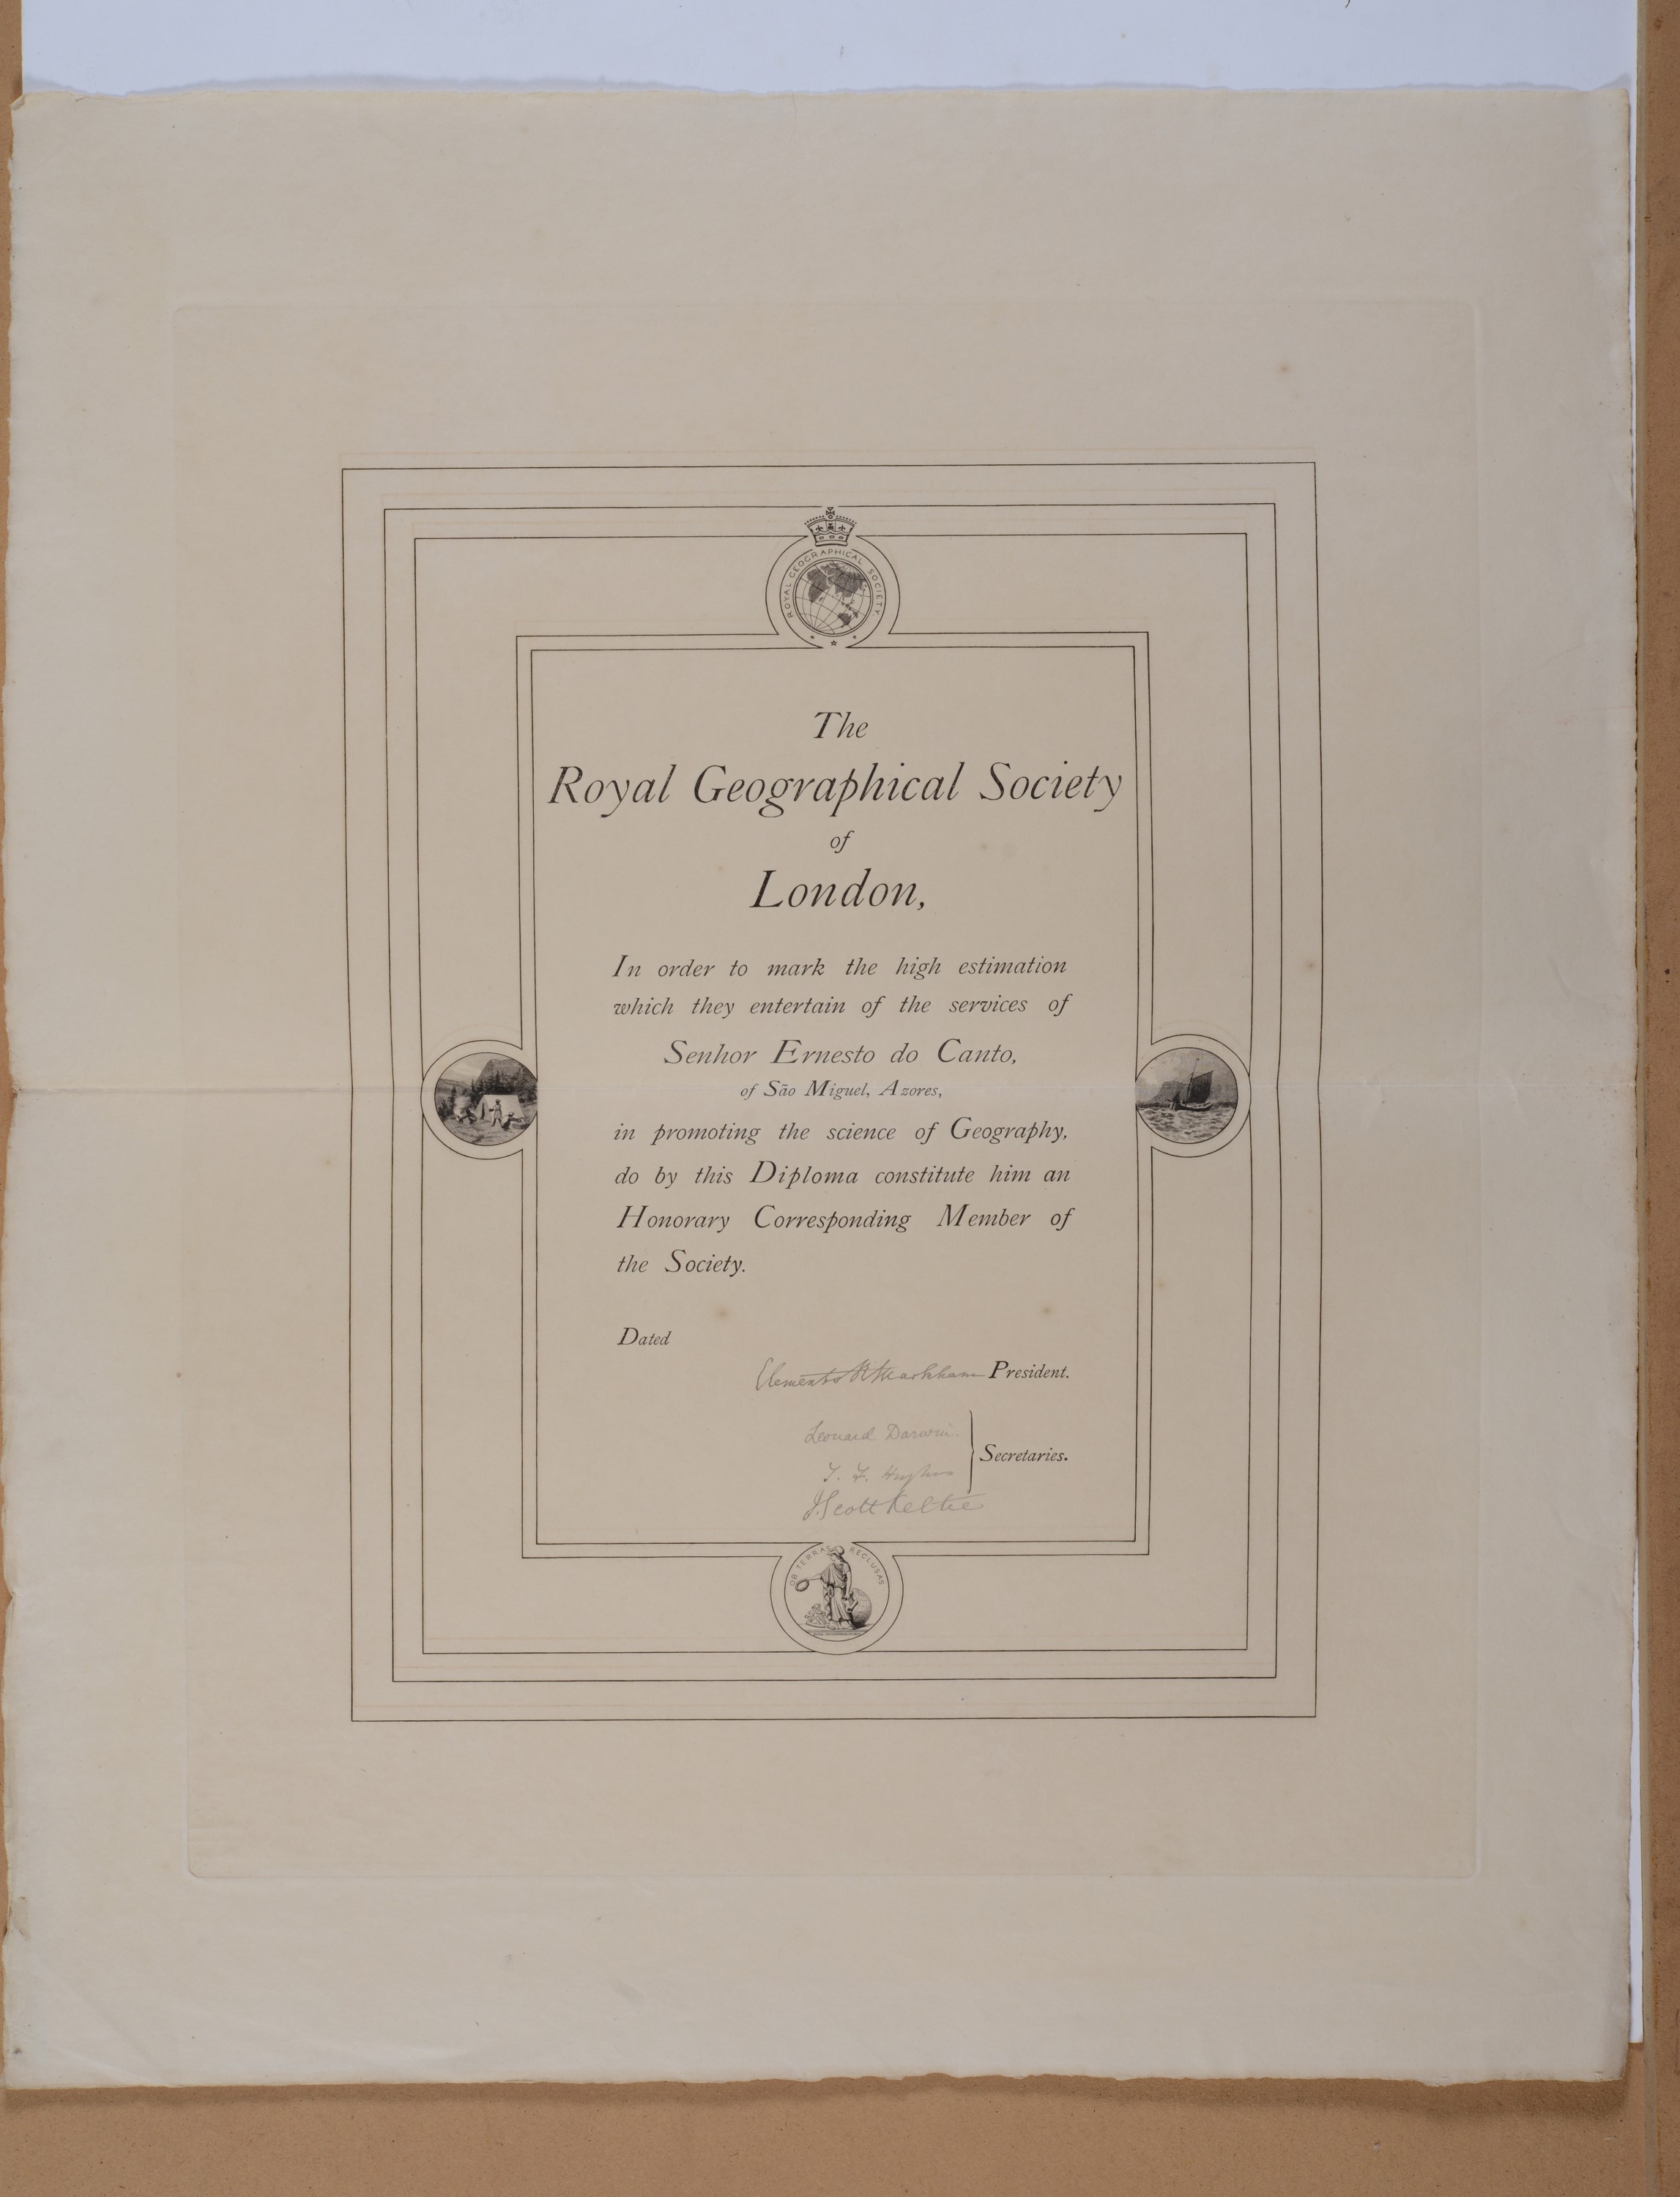 ROYAL GEOGRAPHICAL SOCIETY
The
Royal Geographical Society
of
London,
In order to mark the high estimation
which they entertain of the services of
Senhor Ernesto do Canto,
of São Miguel, Azores,
in promoting the science of Geography,
do by this Diploma constitute him an
Honorary Corresponding Member of
the Society.
Dated
Clements R Markham President.
Leonard Darwin.
Secretaries.
J. Scott Keltie
OB TERRAS RECLUSAS